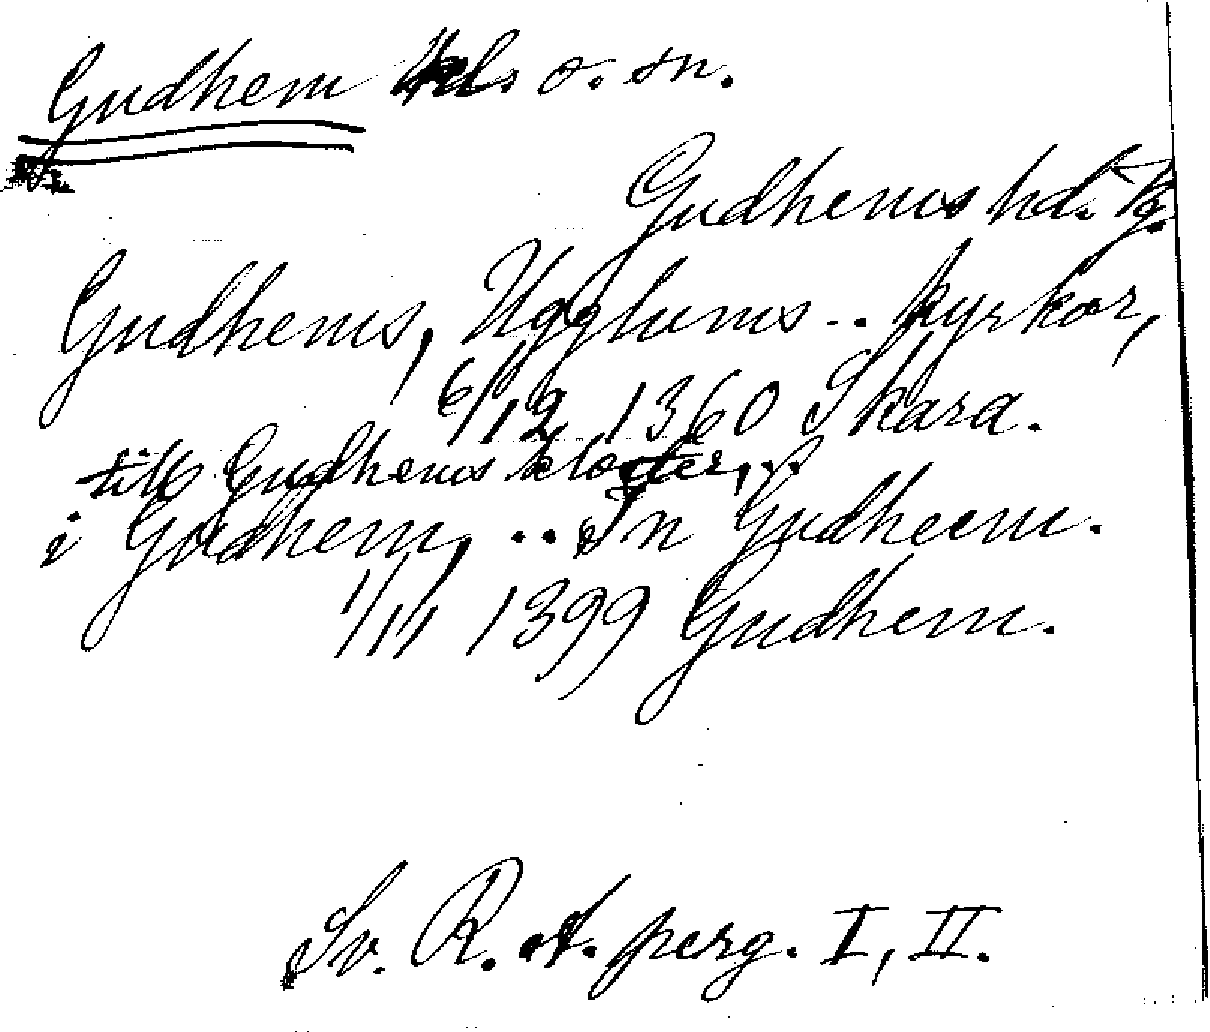 Gudhem kl. o. sn.
Gudhems hd. Vg.
Gudhems, Ugglums .. kyrkor,
6/12 1360 Skara.
till Gudhems kloster, ..
i Gudhem, .. In Gudheem.
1/11 1399 Gudhem.
Sv. R. A. perg. I, II.